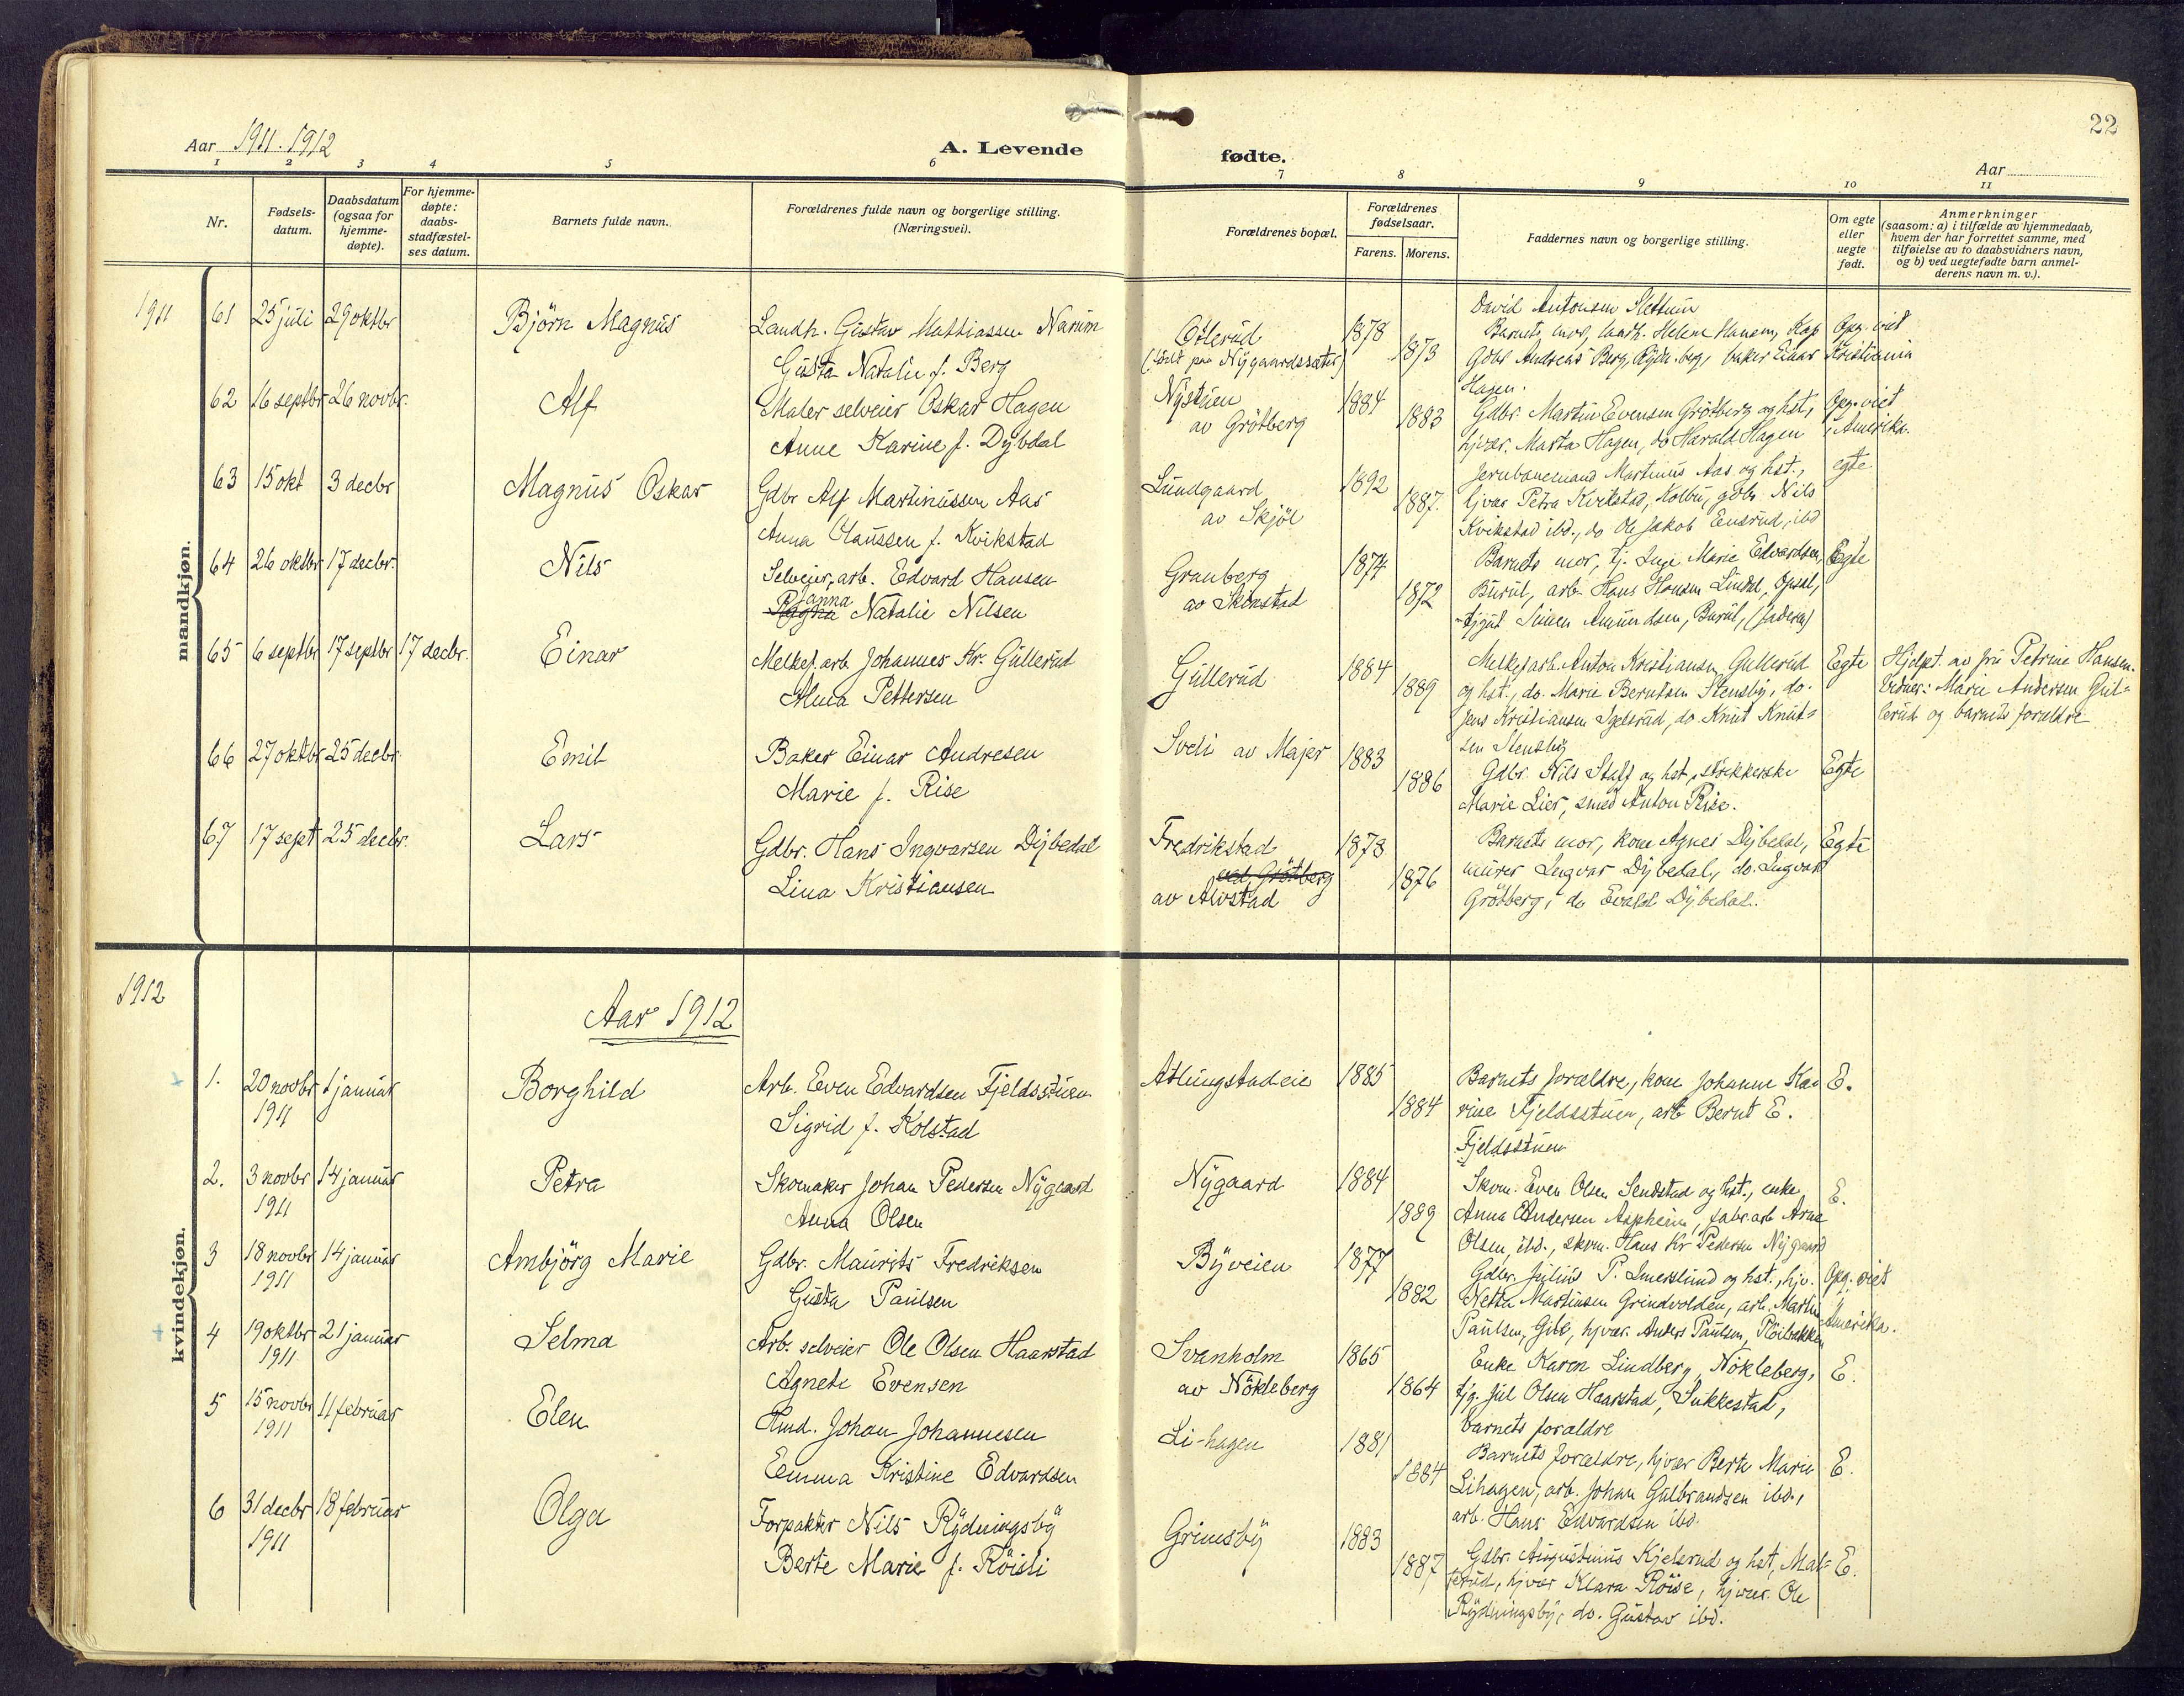 22
Aar 1911. 1912
A. Levende
fødte.
Aar
1 2 3 4 5 6 7 8 9 10 11
Nr.
Fødsels-
datum.
Daabsdatum
(ogsaa for
hjemme-
døpte).
For hjemme-
døpte:
daabs-
stadfæstel-
ses datum.
Barnets fulde navn.
Forældrenes fulde navn og borgerlige stilling.
(Næringsvei).
Forældrenes bopæl.
Forældrenes
fødselsaar.
Farens. Morens.
Faddernes navn og borgerlige stilling.
Om egte
eller
uegte
født.
Anmerkninger
(saasom: a) i tilfælde av hjemmedaab,
hvem der har forrettet samme, med
tilføielse av to daabsvidners navn,
og b) ved uegtefødte barn anmel-
derens navn m. v.).
mandkjøn.
1911
61 25 juli 29 oktbr Björn Magnus
Landh. Gustav Mathiassen Narum
Gusta Natalie f. Berg
Osterud
(født paa Nygaardssæter)
1878
1873
David Antonsen Slettum
Barnets mor, landh. Helene Hansen, Kap
Gdbr Andreas Berg, baker Einar
Hagen.
Opg. viet
Kristiania
62 16 septbr 26 novbr. Alf
Maler selveier Oskar Hagen
Anne Karine f. Dybdal
Nystuen
av Grötberg
1884
1883
Gdbr. Martin Evensen Grötberg og hst,
hjvær. Marta Hagen, do Harald Hagen
Opg. viet
i Amerika.
63 15 okt 3 decbr Magnus Oskar
Gdbr Alf Martinussen Aas
Anna Claussen f. Kvikstad
Lundgaard
av Skjöl
1892
1887.
Jernbanemand Martinus Aas og hst.,
hjvær Petra Kvikstad, Kolbu, gdbr. Nils
Kvikstad ibd., do Ole Jakob Ensrud, ibd
egte
64 26 oktbr 17 decbr. Nils
Selveier, arb. Edvard Hansen
Janna
Ragna Natalie Nilsen
Granberg
av Skinstad
1874
1872
Barnets mor, tj. Inga Marie Edvardsen,
Burul, arb. Hans Hansen Lindal, Opsal,
tjgut Simen Amundsen, Burul, (fadera)
Egte
65 6 septbr 17 septbr 17 decbr. Einar
Melkef. arb. Johannes Kr. Gullerud
Alma Pettersen
Gullerud
1884
1889
Melkef arb. Anton Kristiansen Gullerud
og hst., do. Marie Berntsen Stensby, do.
Jens Kristiansen Sjelsrud, do. Knut Knut-
sen Stensby
Egte
Hjdpt. av fru Petrine Hansen.
Vidner: Marie Andersen Gul-
lerud og barnets forældre
66 27 oktbr 25 decbr. Emil
Baker Einar Andresen
Marie f. Rise
Sveli av Majer
1883
1886
Gdbr. Nils Staff og hst, strikkerske
Marie Lier, smed Anton Rise.
Egte
67 17 sept 25 decbr. Lars
Gdbr. Hans Ingvarsen Dybedal
Lina Kristiansen
Fredrikstad
ved Grötberg
av Alvstad
1878
1876
Barnets mor, kone Agnes Dybedal,
murer Ingvar Dybedal, do. Ingvar
Grötberg, do Evald Dybedal.
Egte
1912
Aar 1912
kvindekjøn.
1. 20 novbr 1911 1 januar Borghild
Arb. Even Edvardsen Fjeldsstuen
Sigrid f. Kolstad
Atlungstadeie
1885
1884
Barnets forældre, kone Johanne Ka-
rine Fjeldsstuen, arb Bernt E.
Fjeldsstuen
E.
2. 3 novbr 1911 14 januar Petra
Skomaker Johan Pedersen Nygaard
Anna Olsen
Nygaard
1884
1889
Skom. Even Olsen Sendstad og hst., enke
Anna Andersen Aspheim, fabr. arb Arne
Olsen, ibd., skom. Hans Kr Pedersen Nygaard
E.
3 18 novbr 1911 14 januar Ambjörg Marie
Gdbr. Maurits Fredriksen
Gusta Paulsen
Byveien
1877
1882
Gdbr. Julius P. Smerslund og hst., hjv.
Netta Martinsen Grindvolden, arb. Martin
Paulsen, Gile, hjvær. Anders Paulsen, Röibakken
Opg. viet
i Amerika.
4 19 oktbr 1911 21 januar Selma
Arb. selveier Ole Olsen Haarstad
Agnete Evensen
Svanholm
av Nökleberg
1865
1864
Enke Karen Lindberg, Nökleberg,
tjg. Jul Olsen Haarstad, Sukkestad,
barnets forældre
E.
5 15 novbr 1911 11 februar Elen
Hmd. Johan Johannesen
Emma Kristine Edvardsen
Li-hagen
1881
1884
Barnets forældre, hjvær Berte Marie
Lihagen, arb. Johan Gulbrandsen ibd.,
arb. Hans Edvardsen ibd.
E.
6 31 decbr 1911 18 februar Olga
Forpakter Nils Rydningsby
Berte Marie f. Röisli
Grimsby
1883
1887
Gdbr. Augustinus Kjelsrud og hst, Mal-
terud, hjvær Klara Röise, hjvær. Ole
Rydningsby, do. Gustav ibd.
E.